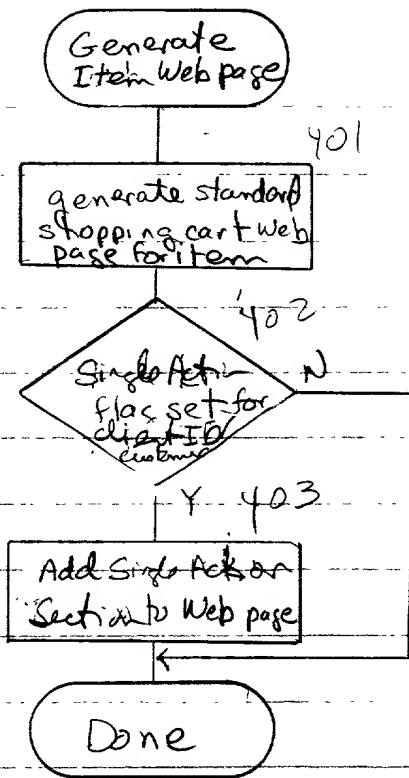 Generate
Item Web page
401
generate standard
shopping cart web
page for item
402
Single Action
flag set for
client ID/
customer
N
Y 403
Add Single Action
Section to Web page
Done